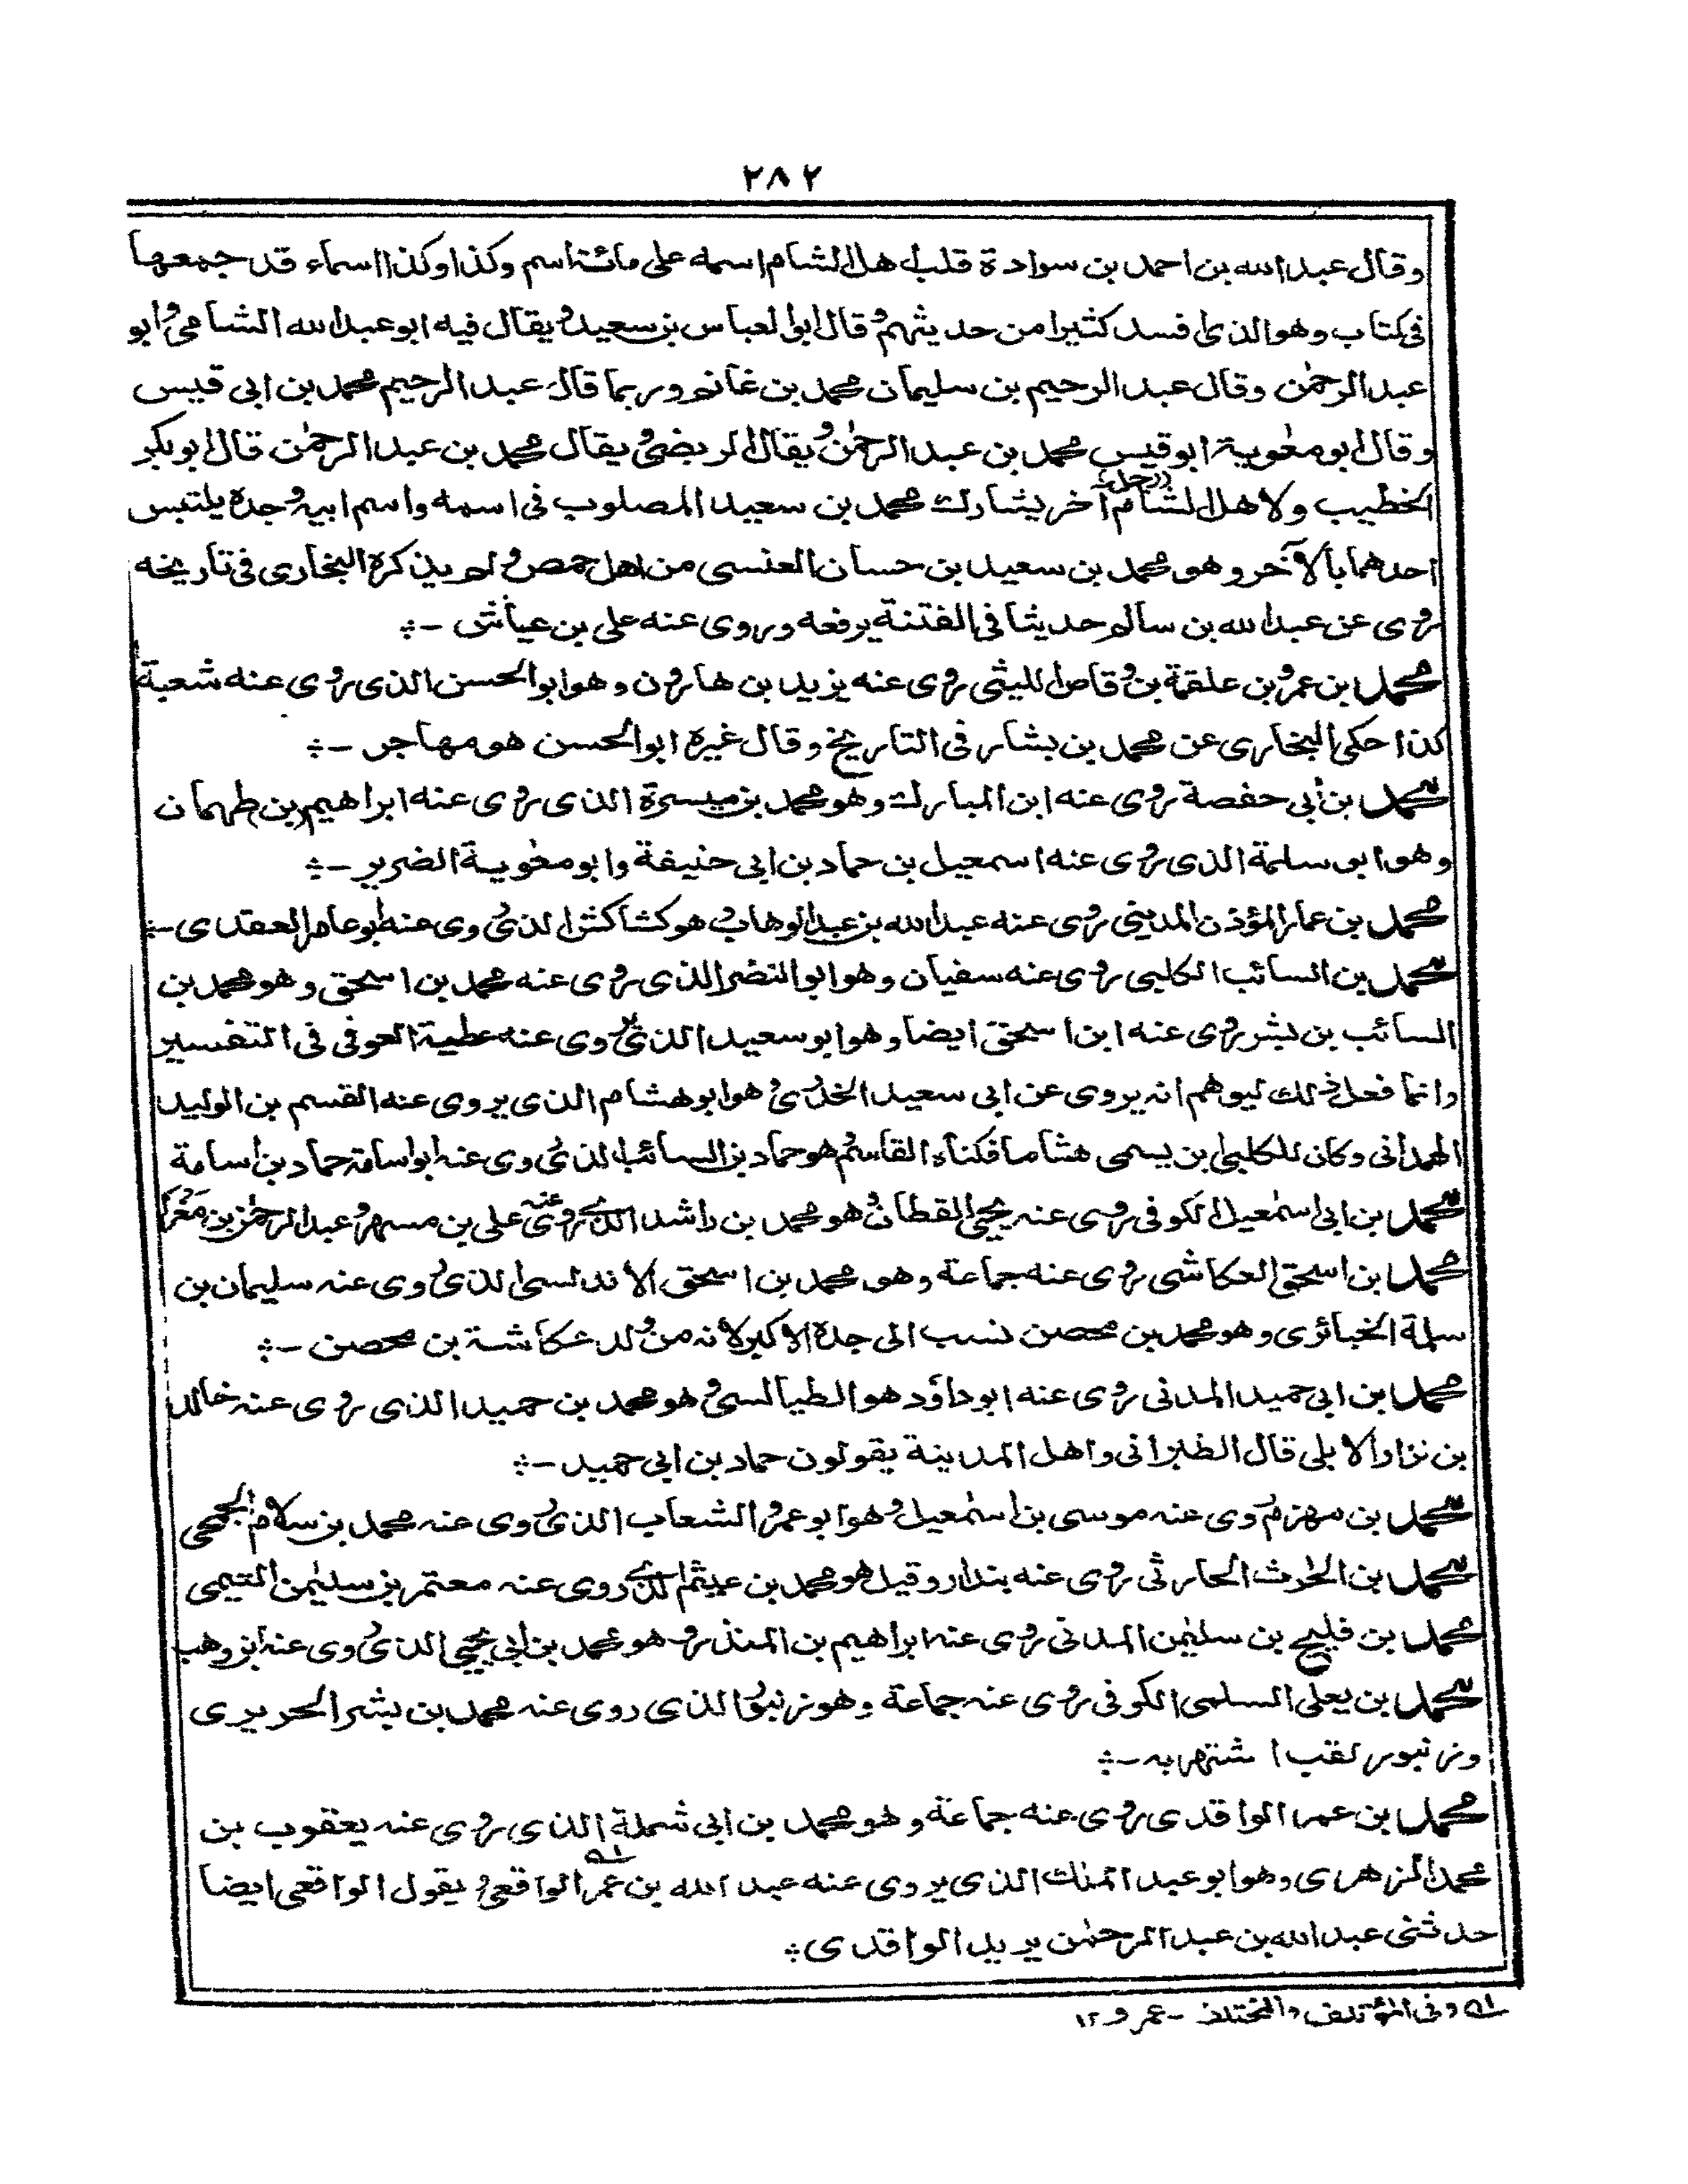 ٢٨٢
وقال عبد الله بن احمد بن سوادة قلب اهل الشام اسمه على مائة اسم وكذا وكذا اسماء قد جمعها
فى كتاب وهو الذى افسد كثيرا من حديثهم وقال ابو العباس بن سعيد ويقال فيه ابو عبد الله الشامى وابو
عبد الرحمٰن وقال عبد الرحيم بن سليمان محمد بن غانم وربما قال عبد الرحيم محمد بن ابى قيس
وقال ابو معٰوية ابو قيس محمد بن عبد الرحمٰن ويقال الربضى ويقال محمد بن عبد الرحمٰن قال ابو بكر
الخطيب ولاهل الشام رجل آخر يشارك محمد بن سعيد المصلوب فى اسمه واسم ابيه وجده يلتبس
احدهما بالآخر وهو محمد بن سعيد بن حسان العنسى من اهل حمص ولم يذكره البخارى فى تاريخه
روى عن عبد الله بن سالم حديثا فى الفتنة يرفعه وروى عنه على بن عياش -
محمد بن عمرو بن علقمة بن وقاص الليثى روى عنه يزيد بن هارون وهو ابو الحسن الذى روى عنه شعبة
كذا حكى البخارى عن محمد بن بشار فى التاريخ وقال غيره ابو الحسن هو مهاجر -
محمد بن أبى حفصة روى عنه ابن المبارك وهو محمد بن ميسرة الذى روى عنه ابراهيم (بن) طهمان
وهو ابو سلمة الذى روى عنه اسمعيل بن حماد بن ابى حنيفة وابو معٰوية الضرير -
محمد بن عمار المؤذن المدينى روى عنه عبد الله بن عبد الوهاب وهو كشاكش الذى روى عنه ابو عامر العقدى -
محمد بن السائب الكلبى روى عنه سفيان وهو ابو النضر الذى روى عنه محمد بن اسحٰق وهو محمد بن
السائب بن بشر روى عنه ابن اسحٰق ايضا وهو ابو سعيد الذى روى عنه عطية العوفى فى التفسير
وانما فعل ذلك ليوهم انه يروى عن ابى سعيد الخدرى وهو ابو هشام الذى يروى عنه القسم بن الوليد
الهمدانى وكان للكلبى ابن يسمى هشاما فكناه القاسم وهو حماد بن السائب الذى روى عنه ابو اسامة حماد بن أسامة
محمد بن ابى اسمٰعيل الكوفى روى عنه يحيى القطان وهو محمد بن راشد الذى روى عنه على بن مسهر وعبد الرحمٰن بن مَغْرا
محمد بن اسحٰق العكاشى روى عنه جماعة وهو محمد بن اسحٰق الاندلسى الذى روى عنه سليمان بن
سلمة الخبائرى وهو محمد بن محصن نسب الى جده الاكبر لانه من ولد عكاشة بن محصن -
محمد بن ابى حميد المدنى روى عنه ابو داؤد هو الطيالسى وهو محمد بن حميد الذى روى عنه خالد
بن نزار الايلى قال الطبرانى واهل المدينة يقولون حماد بن ابى حميد -
محمد بن مهزم روى عنه موسى بن اسمٰعيل وهو ابو عمرو الشعاب الذى روى عنه محمد بن سلام الجمحى
محمد بن الحٰرث الحارثى روى عنه بندار وقيل هو محمد بن عيثم الذى روى عنه معتمر بن سليٰمن التيمى
محمد بن فليح بن سليٰمن المدنى روى عنه ابراهيم بن المنذر وهو محمد بن ابى يحيى الذى روى عنه ابن وهب
محمد بن يعلى السلمى الكوفى روى عنه جماعة وهو زنبور الذى روى عنه محمد بن بشر الحريرى
وزنبور لقب اشتهر به -
محمد بن عمر الواقدى روى عنه جماعة وهو محمد بن ابى شملة الذى روى عنه يعقوب بن
محمد الزهرى وهو ابو عبد الملك الذى يروى عنه عبد الله بن عمر الواقعى ويقول الواقعى ايضا
حدثنى عبد الله بن عبد الرحمٰن يريد الواقدى
وفى المؤتلف والمختلف - عمرو ١٢